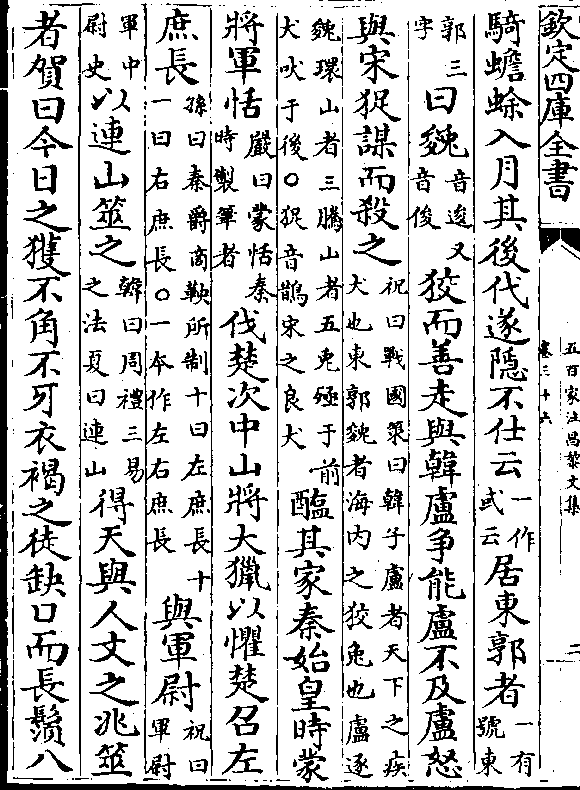 欽定四庫全書
五百家注昌黎文集
卷三十六
二
騎蟾蜍入月其後代遂隱不仕云一作或云居東郭者一有號東
郭三字曰㕙音逡又音俊狡而善走與韓盧争能盧不及盧怒
與宋㹱謀而殺之祝曰戰國策曰韓子盧者天下之疾犬也東郭㕙者海内之狡兔也盧逐
㕙環山者三騰山者五兔殛于前犬吠于後〇㹱音鵲宋之良犬醢其家秦始皇時蒙
將軍恬嚴曰蒙恬秦時製筆者伐楚次中山將大獵以懼楚召左
庶長孫曰秦爵商鞅所制十曰左庶長十一曰右庶長〇一本作左右庶長與軍尉祝曰軍尉
軍中尉史以連山筮之韓曰周禮三易之法夏曰連山得天與人文之兆筮
者賀曰今日之獲不角不牙衣褐之徒缺口而長鬚八